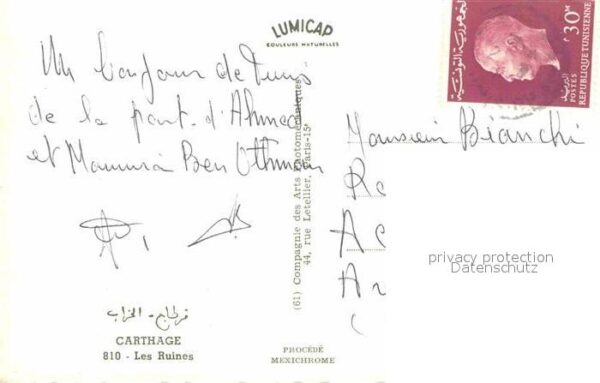 LUMICAP
COULEURS NATURELLES
Un bonjour de Tunis
de la part d'Ahmed
et Mamia Ben Othman
قرطاج - الخراب
CARTHAGE
810 - Les Ruines
(61) Compagnie des Arts Photomécaniques
44, rue Letellier, Paris-15e
PROCÉDÉ
MEXICHROME
الجمهورية التونسية
30M
البريد
POSTES
REPUBLIQUE TUNISIENNE
Monsieur Bianchi
privacy protection
Datenschutz